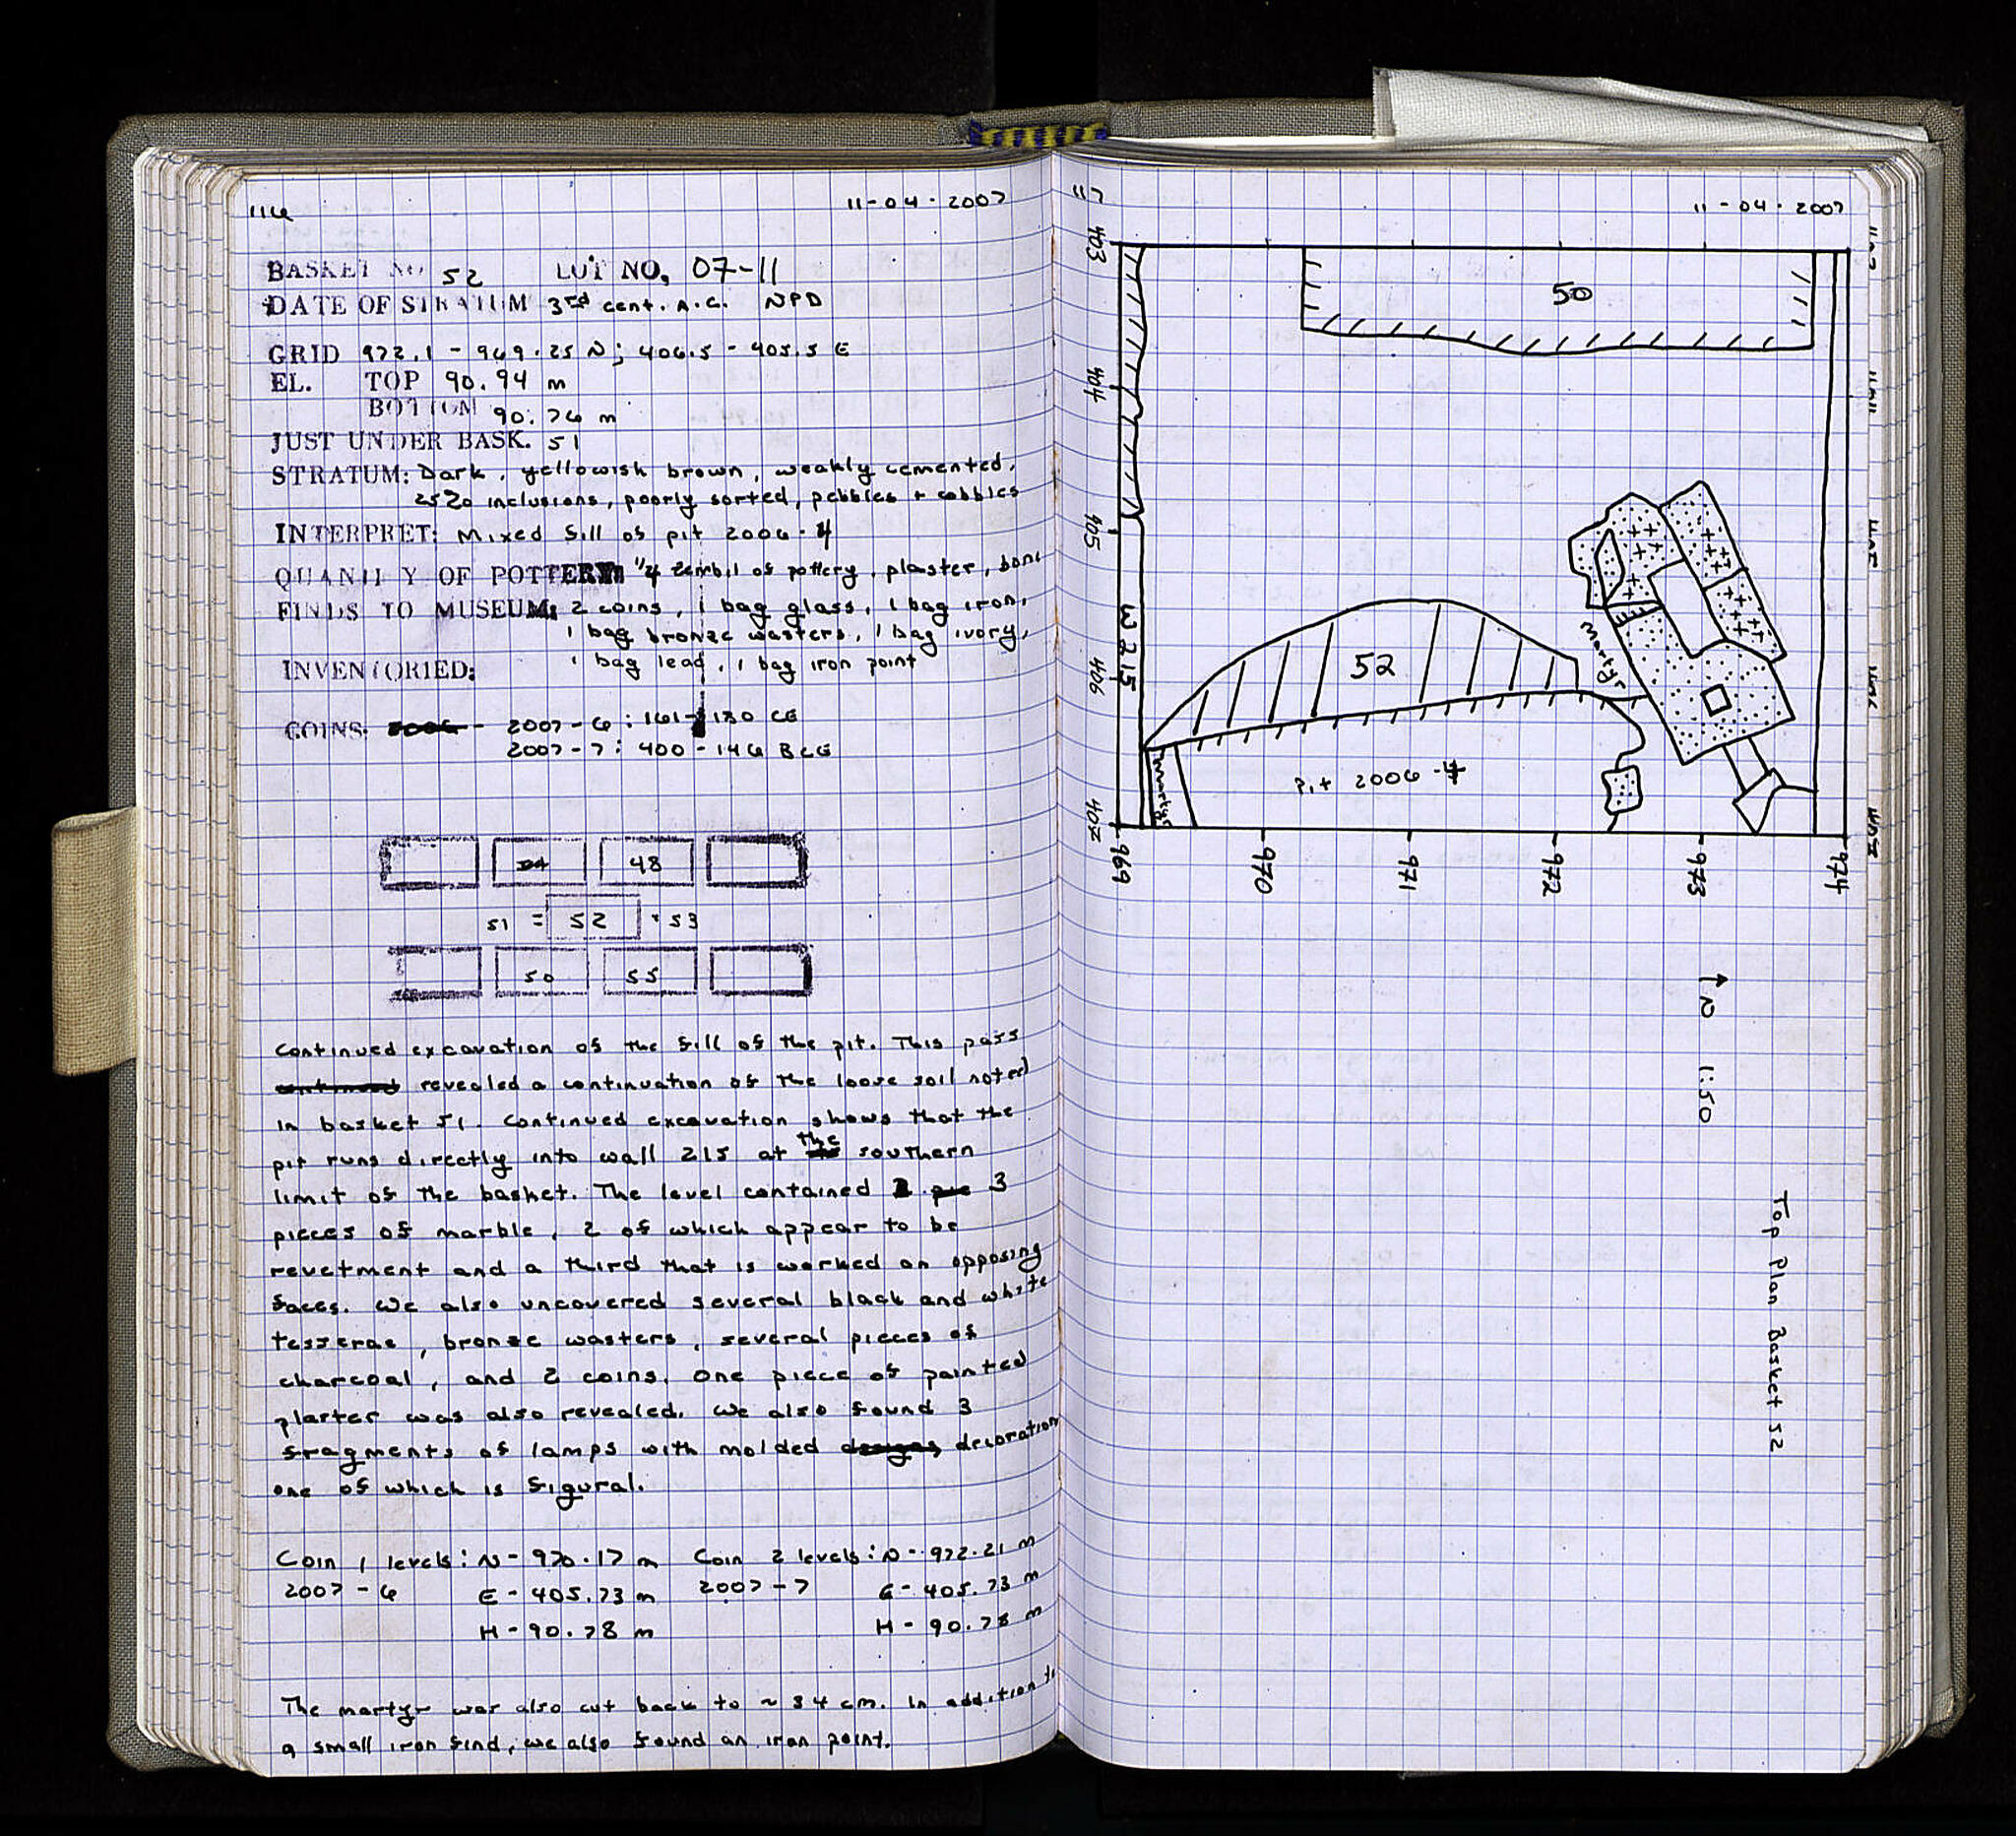 116 11-04-2007
BASKET NO 52 LOT NO. 07-11
DATE OF STRATUM 3rd cent. A.C. NPD
GRID 972.1 - 969.25 N; 406.5 - 405.5 E
EL. TOP 90.94 m
BOTTOM 90.76 m
JUST UNDER BASK. 51
STRATUM: Dark, yellowish brown, weakly cemented,
25% inclusions, poorly sorted, pebbles + cobbles
INTERPRET: Mixed fill of pit 2006-4
QUANTITY OF POTTERY: 1/4 zembil of pottery, plaster, bone
FINDS TO MUSEUM: 2 coins, 1 bag glass, 1 bag iron,
1 bag bronze wasters, 1 bag ivory,
INVENTORIED: 1 bag lead, 1 bag iron point
COINS: 2007-6: 161-180 CE
2007-7: 400-146 BCE
48
51 = 52 = 53
50 55
Continued excavation of the fill of the pit. This pass
revealed a continuation of the loose soil noted
in basket 51. Continued excavation shows that the
pit runs directly into wall 215 at the southern
limit of the basket. The level contained 3
pieces of marble, 2 of which appear to be
revetment and a third that is worked on opposing
faces. We also uncovered several black and white
tesserae, bronze wasters, several pieces of
charcoal, and 2 coins. One piece of painted
plaster was also revealed. We also found 3
fragments of lamps with molded decoration
one of which is figural.
Coin 1 levels: N - 970.17 m Coin 2 levels: N - 972.21 m
2007-6 E - 405.73 m 2007-7 E - 405.73 m
H - 90.78 m H - 90.78 m
The martyr was also cut back to ~ 34 cm. In addition to
a small iron find, we also found an iron point.
117 11-04-2007
403
404
405
406
407
W 215
50
52
martyr
martyr
pit 2006-4
969
970
971
972
973
974
N 1:50
Top Plan Basket 52